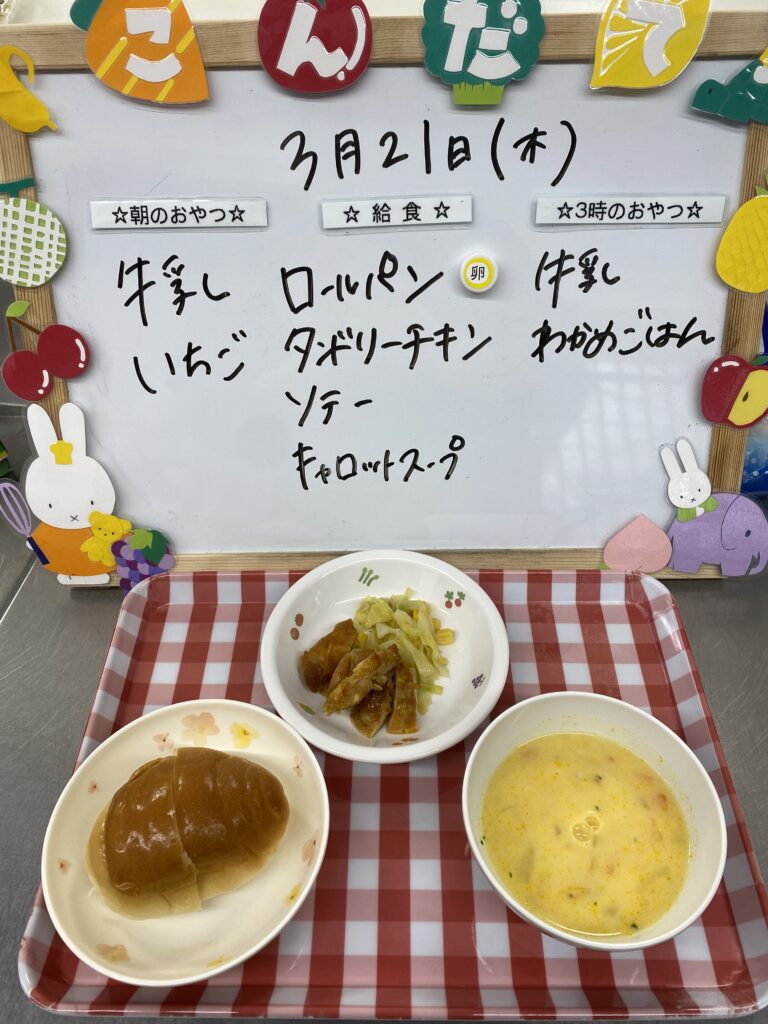 こんだて
3月21日(木)
☆朝のおやつ☆
牛乳
いちご
☆ 給 食 ☆
ロールパン 卵
タンドリーチキン
ソテー
キャロットスープ
☆3時のおやつ☆
牛乳
わかめごはん